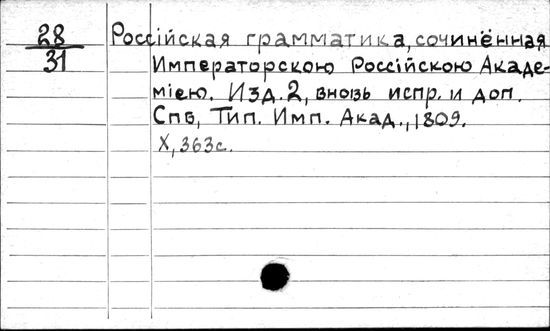 28
31
Россійская грамматика, сочинённая
Императорскою Россійскою Акаде-
міею. Изд. 2, вновь испр. и доп.
Спб, Тип. Имп. Акад., 1809.
X, 363с.